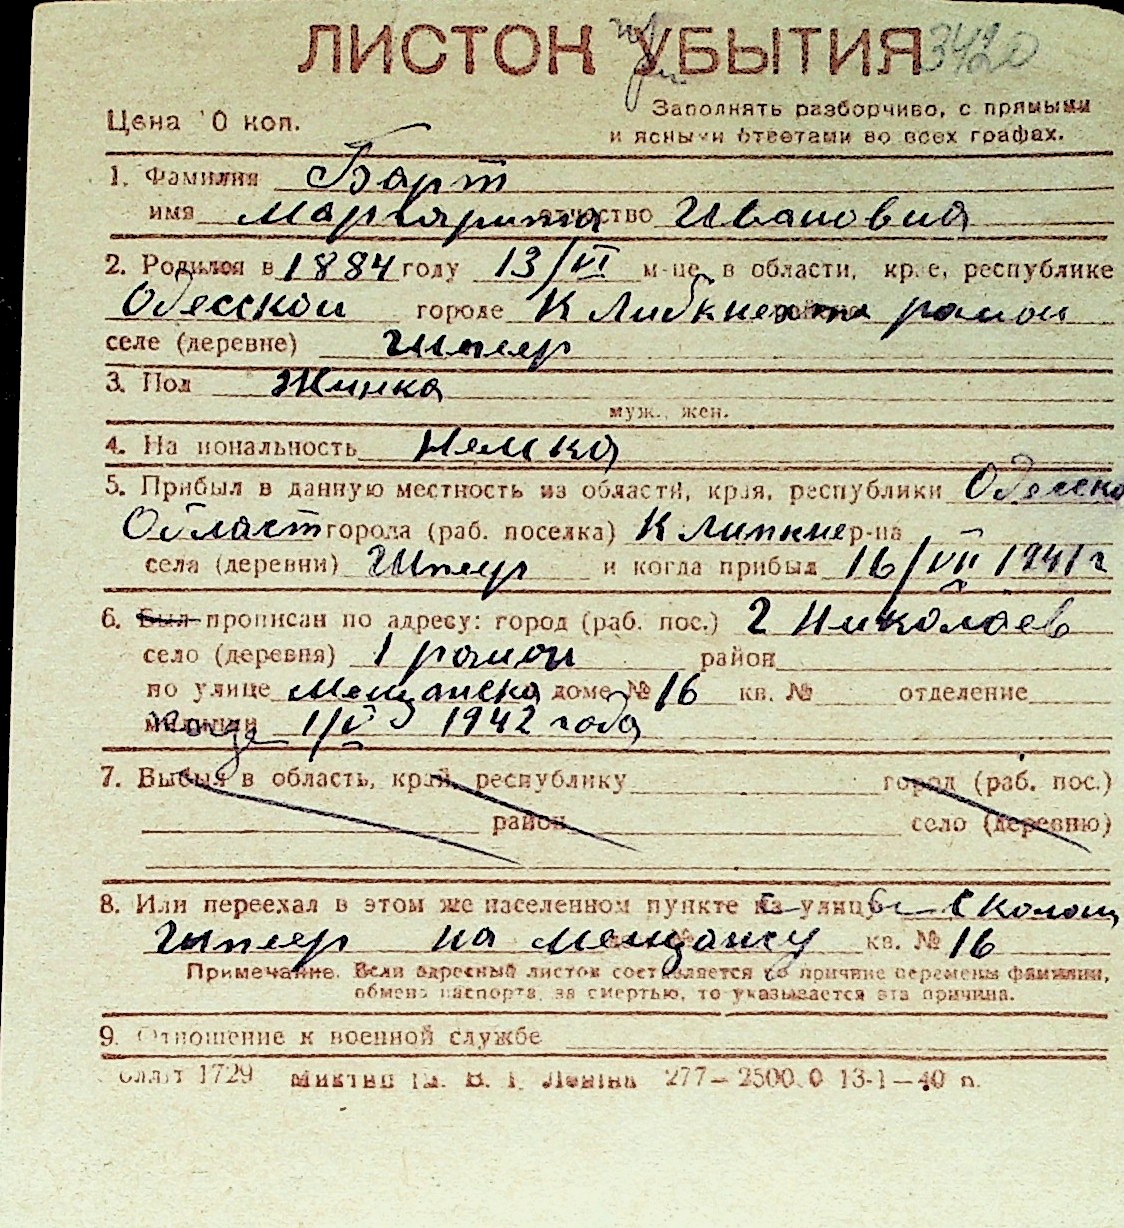 ЛИСТОК УБЫТИЯ 3420
Цена 10 коп.
Заполнять разборчиво, с прямыми
и ясными ответами во всех графах.
1. Фамилия Барт
имя Маргарита отчество Ивановна
2. Родился в 1884 году 13/VI м-це, в области, крае, республике
Одесской городе К Либкнехта район
селе (деревне) Шпеер
3. Пол Жинка
муж., жен.
4. Национальность Немка
5. Прибыл в данную местность из области, края, республики Одесско
Област города (раб. поселка) К Липкне р-на
села (деревни) Шпеер и когда прибыл 16/VII 1941 г
6. Был прописан по адресу: город (раб. пос.) г Николаев
село (деревня) 1 район район
по улице Мещанска доме № 16 кв. № отделение
милиции 1/V 1942 года
7. Выбыл в область, край, республику город (раб. пос.)
район село (деревню)
8. Или переехал в этом же населенном пункте из улицы с колони
Шпеер на Мещанску кв. № 16
Примечание. Если адресный листок составляется по причине перемены фамилии,
обмена паспорта, за смертью, то указывается эта причина.
9. Отношение к военной службе
1729 277— 2500.0 13-1—40 п.